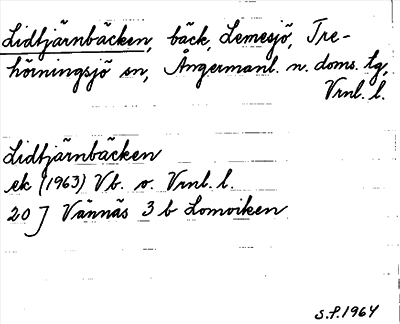 Lidtjärnbäcken, bäck, Lemesjö, Tre-
hörningsjö sn, Ångermanl. n. doms. lg,
Vrnl. l.
Lidtjärnbäcken
ek (1963) Vb. o. Vrnl. l.
20 J Vännäs 3 b Lomviken
S.F. 1964